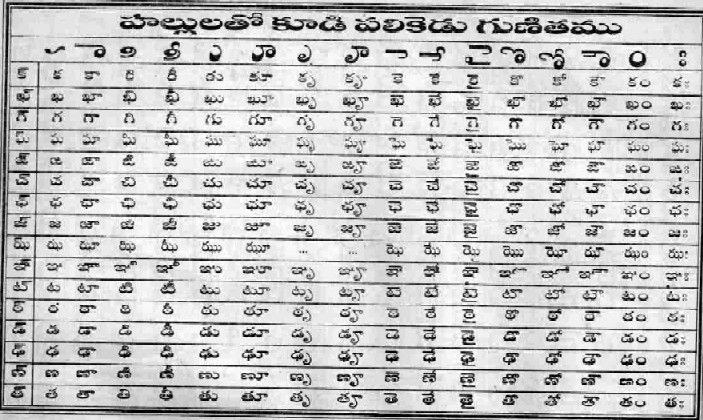 హల్లులతో కూడి పలికెడు గుణితము
ా ి ీ ు ూ ృ ౄ ె ే ై ొ ో ౌ ం ః
క్ క కా కి కీ కు కూ కృ కౄ కె కే కై కొ కో కౌ కం కః
ఖ్ ఖ ఖా ఖి ఖీ ఖు ఖూ ఖృ ఖౄ ఖె ఖే ఖై ఖొ ఖో ఖౌ ఖం ఖః
గ్ గ గా గి గీ గు గూ గృ గౄ గె గే గై గొ గో గౌ గం గః
ఘ్ ఘ ఘా ఘి ఘీ ఘు ఘూ ఘృ ఘౄ ఘె ఘే ఘై ఘొ ఘో ఘౌ ఘం ఘః
ఙ్ ఙ ఙా ఙి ఙీ ఙు ఙూ ఙృ ఙౄ ఙె ఙే ఙై ఙొ ఙో ఙౌ ఙం ఙః
చ్ చ చా చి చీ చు చూ చృ చౄ చె చే చై చొ చో చౌ చం చః
ఛ్ ఛ ఛా ఛి ఛీ ఛు ఛూ ఛృ ఛౄ ఛె ఛే ఛై ఛొ ఛో ఛౌ ఛం ఛః
జ్ జ జా జి జీ జు జూ జృ జౄ జె జే జై జొ జో జౌ జం జః
ఝ్ ఝ ఝా ఝి ఝీ ఝు ఝూ ... ... ఝె ఝే ఝై ఝొ ఝో ఝౌ ఝం ఝః
ఞ్ ఞ ఞా ఞి ఞీ ఞు ఞూ ఞృ ఞౄ ఞె ఞే ఞై ఞొ ఞో ఞౌ ఞం ఞః
ట్ ట టా టి టీ టు టూ టృ టౄ టె టే టై టొ టో టౌ టం టః
ఠ్ ఠ ఠా ఠి ఠీ ఠు ఠూ ఠృ ఠౄ ఠె ఠే ఠై ఠొ ఠో ఠౌ ఠం ఠః
డ్ డ డా డి డీ డు డూ డృ డౄ డె డే డై డొ డో డౌ డం డః
ఢ్ ఢ ఢా ఢి ఢీ ఢు ఢూ ఢృ ఢౄ ఢె ఢే ఢై ఢొ ఢో ఢౌ ఢం ఢః
ణ్ ణ ణా ణి ణీ ణు ణూ ణృ ణౄ ణె ణే ణై ణొ ణో ణౌ ణం ణః
త్ త తా తి తీ తు తూ తృ తౄ తె తే తై తొ తో తౌ తం తః